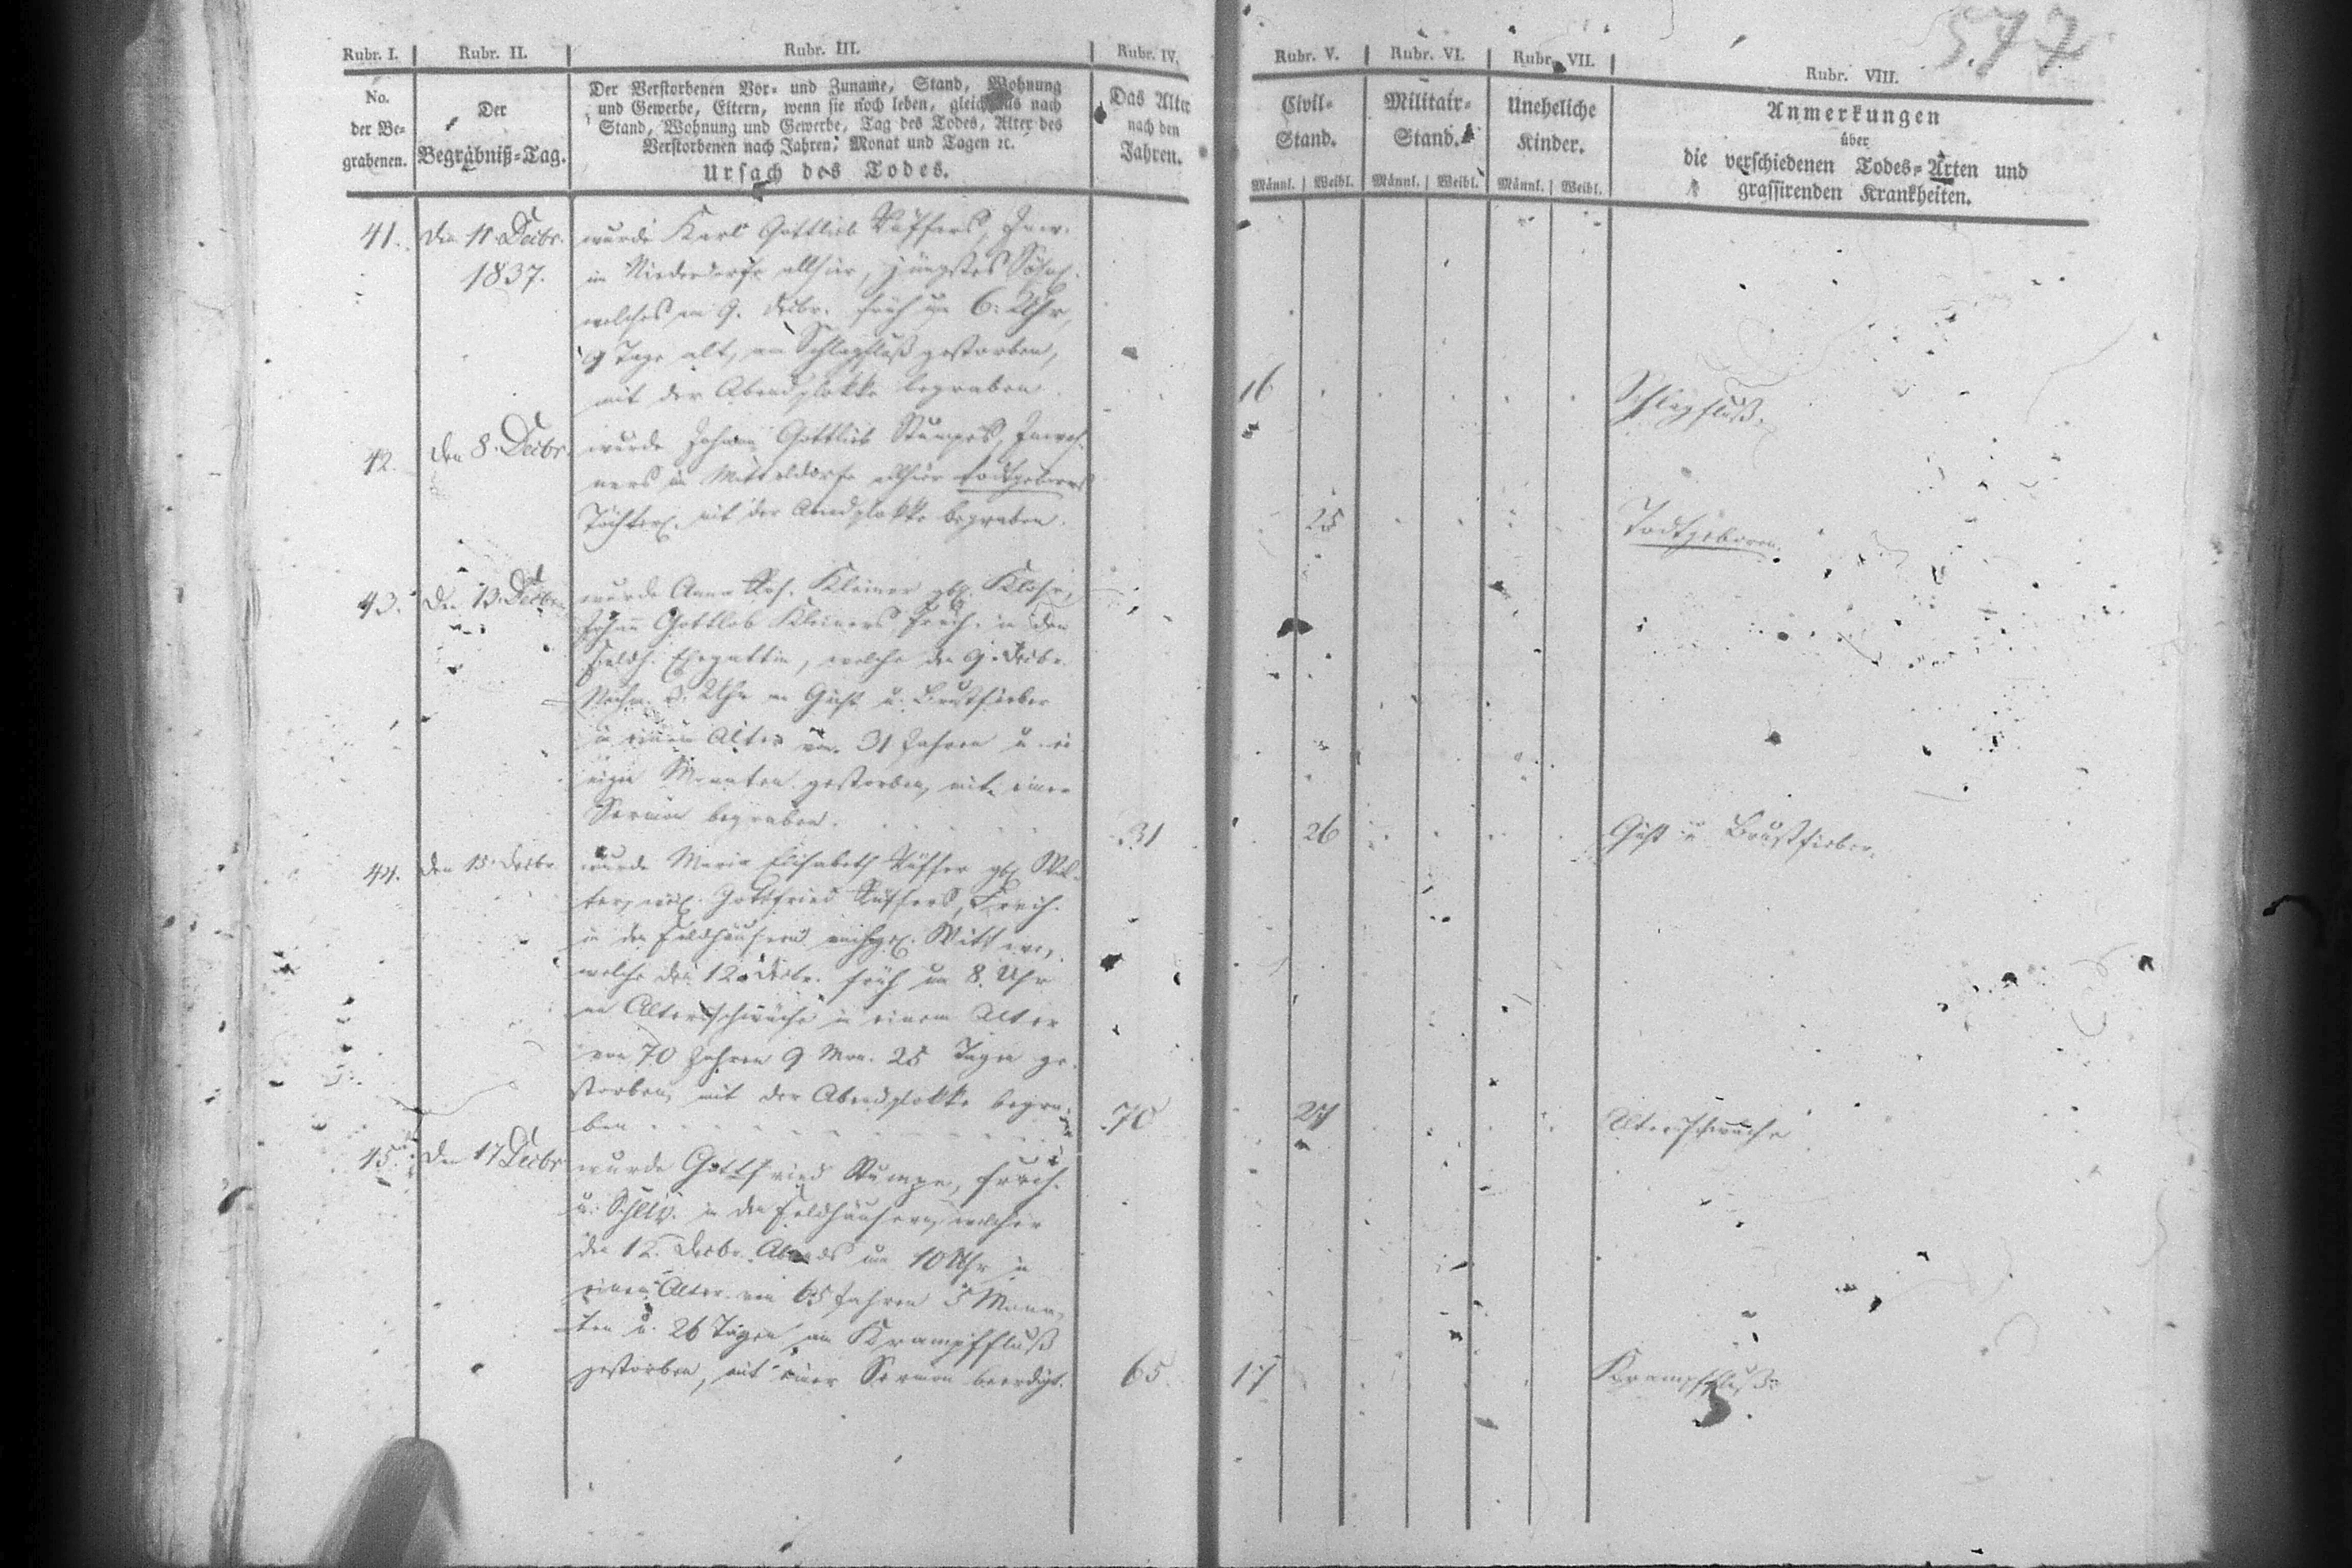 577
Rubr. I. Rubr. II. Rubr. III. Rubr. IV. Rubr. V. Rubr. VI. Rubr. VII. Rubr. VIII.
No.
der Be-
grabenen.
Der
Begräbniß-Tag.
Der Verstorbenen Vor- und Zuname, Stand, Wohnung
und Gewerbe, Eltern, wenn sie noch leben, gleichfalls nach
Stand, Wohnung und Gewerbe, Tag des Todes, Alter des
Verstorbenen nach Jahren, Monat und Tagen ꝛc.
Ursach des Todes.
Das Alter
nach den
Jahren.
Civil-
Stand.
Militair-
Stand.
Uneheliche
Kinder.
Männl. Weibl. Männl. Weibl. Männl. Weibl.
Anmerkungen
über
die verschiedenen Todes-Arten und
grassirenden Krankheiten.
41. den 11. Decbr.
1837.
wurde Karl Gottlieb Inw.
im Niederdorfe allhier, jüngstes Söhnl.
welches am 9. Decbr. früh um 6. Uhr,
9 Tage alt, am Schlagfluß gestorben,
mit der Abendglokke begraben.
16 Schlagfluß.
42. den 8. Decbr.
wurde Johann Gottlieb Stumpes, Inwoh-
ners im Mitteldorfe allhier todtgebornes
Töchterl. mit der Abendglokke begraben.
25 Todtgeboren.
43. den 13. Decbr.
wurde Anna Ros. Kleiner gb. Klose,
Johann Gottlob Kleiners, Freih. in den
Feldh. Ehegattin, welche den 9. Decbr.
Nachm. 3. Uhr an Gicht u. Brustfieber
in einem Alter von 31 Jahren u. ei-
nigen Monaten gestorben, mit einer
Sermon begraben.
31 26 Gicht u. Brustfieber.
44. den 15. Decbr.
wurde Maria Elisabeth gb.
Gottfried Freih.
in den Feldhäusern Wittwe,
welche den 12. Decbr. früh um 8. Uhr
an Altersschwäche in einem Alter
von 70 Jahren 9 Mon. 25 Tagen ge-
storben, mit der Abendglokke begra-
ben
70 27 Altersschwäche
45. den 17 Decbr
wurde Gottfried Stumpe, Freih.
u. in den Feldhäusern, welcher
den 12. Decbr. Abends um 10 Uhr in
einem Alter von 65 Jahren 5 Mona-
ten u. 26 Tagen am Krampffluß
gestorben, mit einer Sermon beerdigt.
65 17 Krampffluß.